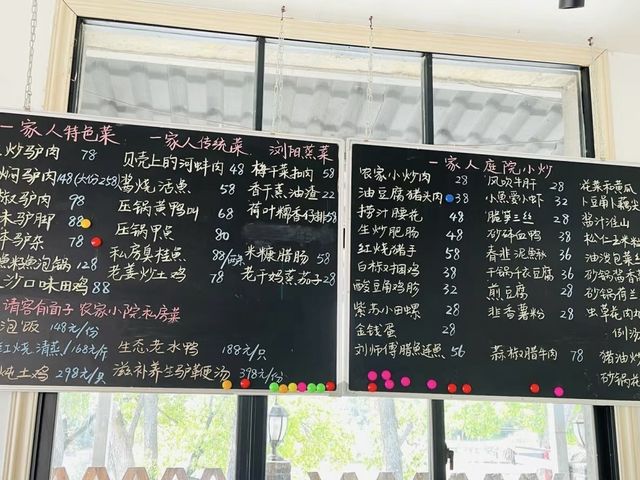 一家人特色菜
炒驴肉 78
焖驴肉 148(大份258)
椒驴肉 98
味驴脚 88
驴杂 78
泡锅 128
沙口味田鸡 88
一家人传统菜
贝壳上的河蚌肉 48
酱烧活鱼 58
压锅黄鸭叫 68
压锅甲鱼 80
私房臭桂鱼 88/
老姜炒土鸡 78
浏阳蒸菜
梅干菜扣肉 58
香干蒸油渣 22
荷叶粉香仔排 58
米糠腊肠 58
老干妈蒸茄子 28
请客有面子 农家小院私房菜
泡饭 148元/份
红烧清蒸/168元/斤
生态老水鸭 188元/只
炖土鸡 298元/只
滋补养生驴鞭汤 398元/份
一家人庭院小炒
农家小炒肉 28
油豆腐猪头肉 38
捞汁腰花 48
生炒肥肠 48
红烧猪手 58
白椒扣鸡 38
酸豆角鸡胗 32
紫苏小田螺 28
金钱蛋 28
刘师傅腊鱼 56
风吹牛肝 28
小鱼爱小虾 32
28
砂钵血鸭 38
春韭泥鳅 36
干锅千衣豆腐 36
煎豆腐 28
韭香薯粉 28
蒜椒腊牛肉 78
花菜和黄瓜
卜豆角藕尖
酱汁淮山
松仁玉米
油浅
砂锅
砂锅
倒汤
猪油
砂锅